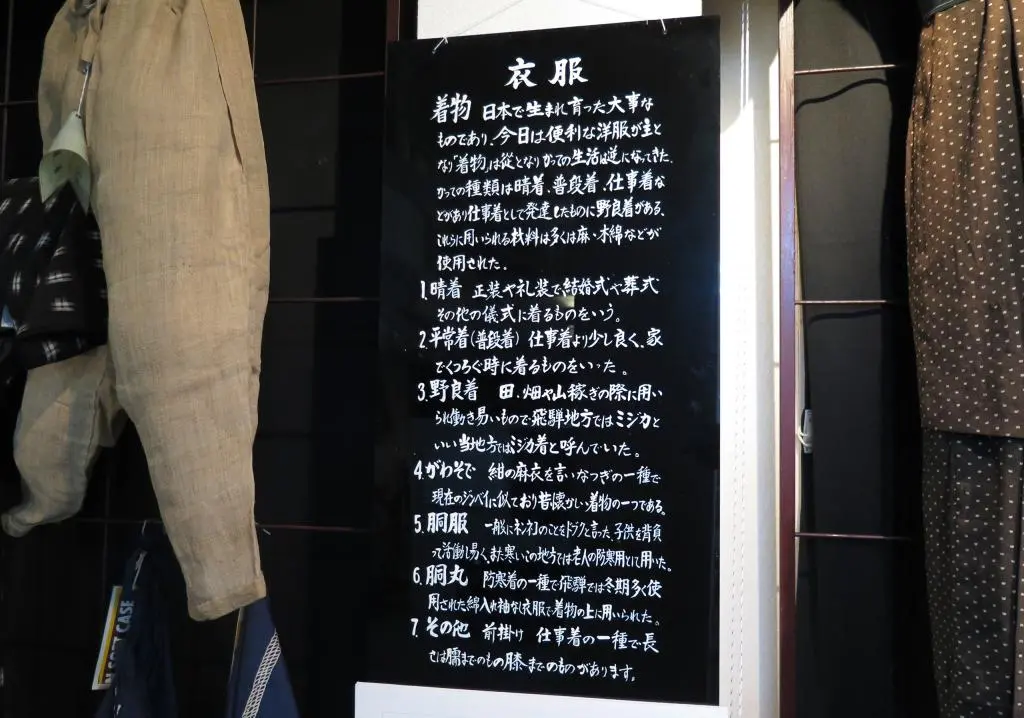 衣服
着物 日本で生まれ育った大事な
ものであり、今日は便利な洋服が主と
なり「着物」は従となりかつての生活は逆になってきた、
かつての種類は晴着、普段着、仕事着な
どがあり仕事着として発達したものに野良着がある、
これらに用いられる材料は多くは麻・木綿などが
使用された。
1.晴着 正装や礼装で、結婚式や葬式
その他の儀式に着るものをいう。
2.平常着(普段着) 仕事着より少し良く、家
でくつろぐ時に着るものをいった。
3.野良着 田、畑や山稼ぎの際に用い
られ働き易いもので飛騨地方ではミジカと
いい当地方ではミジカ着と呼んでいた。
4.がわそで 紺の麻衣を言いなつぎの一種で
現在のジンベイに似ており昔懐かしい着物の一つである。
5.胴服 一般にネンネコのことをドウブクと言った、子供を背負
って活動し易く、また寒いこの地方では老人の防寒用として用いた。
6.胴丸 防寒着の一種で飛騨では冬期多く使
用された綿入れ袖なし衣服で着物の上に用いられた。
7.その他 前掛け 仕事着の一種で長
さは臑までのもの膝までのものがあります。
CASE